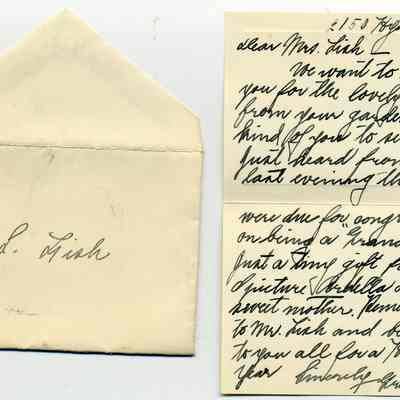 S. Fish
2150 Hy
Dear Mrs. Fish —
We want to
you for the lovely
from your garde
kind of you to se
Just heard from
last evening th
were due for congr
on being a "Gran
Just a tiny gift fo
picture Ardella a
sweet mother. Rem
to Mr. Fish and b
to you all for a
year Sincerely